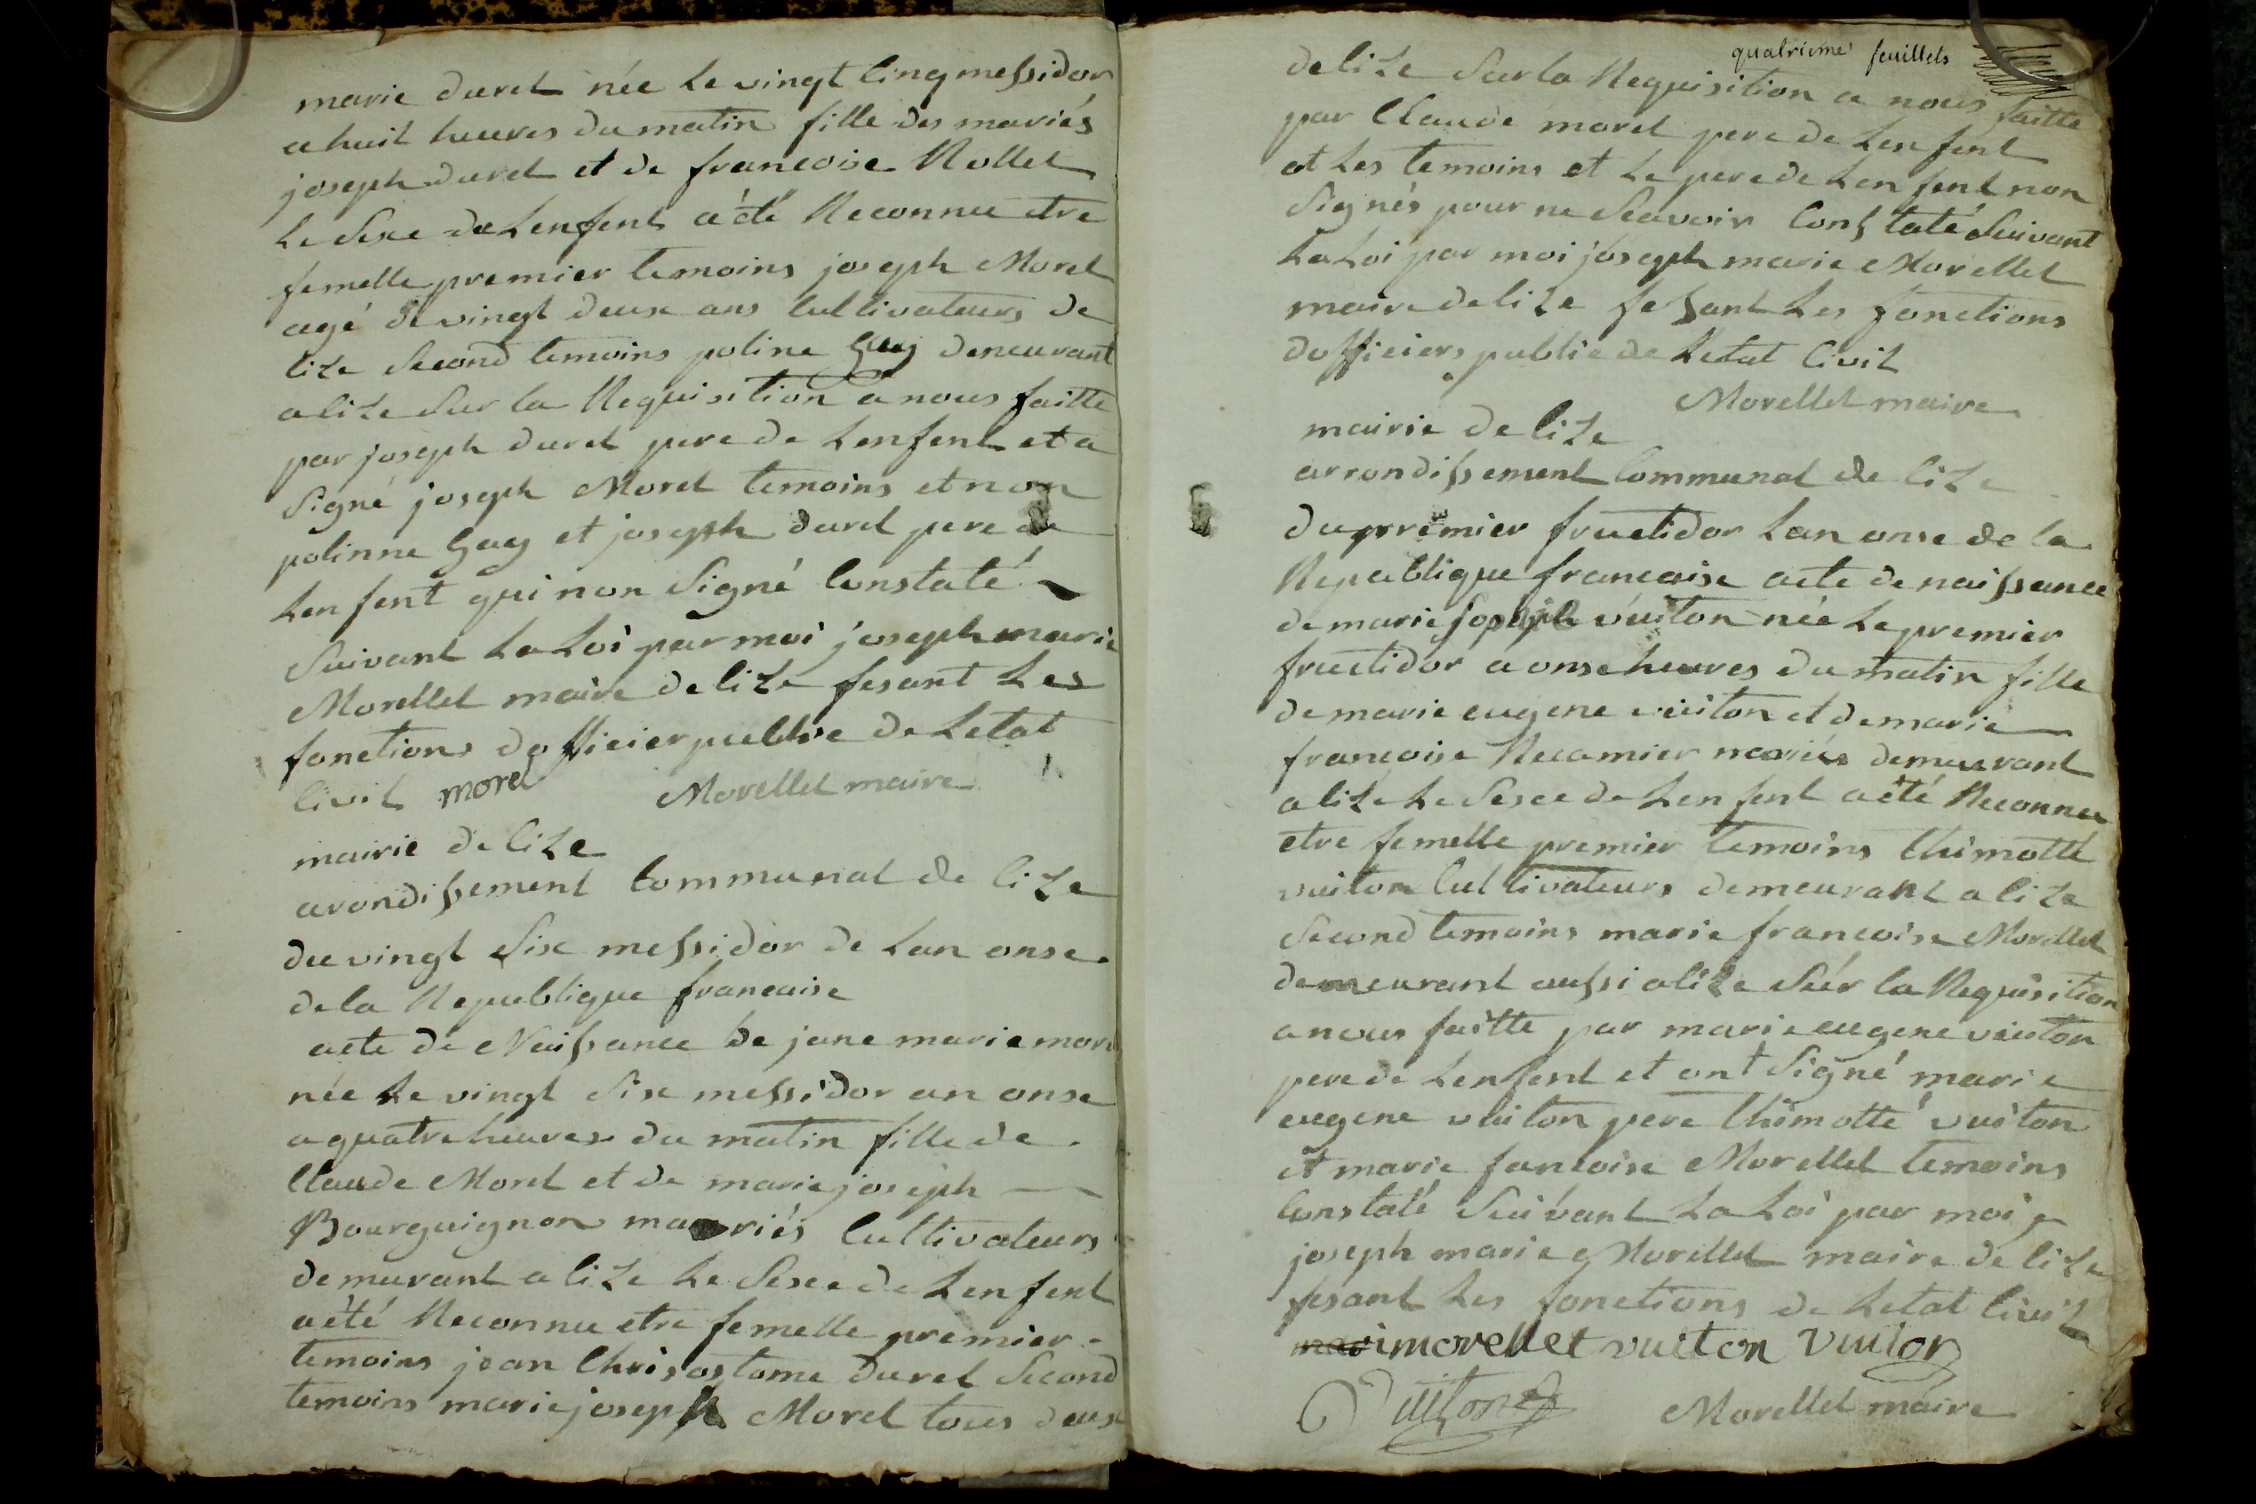 marie duret née le vingt cinq messidor
a huit heures du matin fille des mariés
joseph duret et de francoise Rollet
le sexe de Lenfent a été Reconnu etre
femelle premier temoins joseph Morel
agé de vingt deux ans Cultivateurs de
lize second temoins poline Gay demeurant
a lize sur la Requisition a nous faitte
par joseph duret pere de Lenfent et a
signé joseph Morel temoins et non
polinne Gay et joseph duret pere de
Lenfent qui non signé Constaté
suivant La Loi par moi joseph marie
Morellet maire de lize fesant Les
fonctions dofficier publie de Letat
Civil morel Morellet maire
mairie de lize
arondissement Communal de lize
du vingt six messidor de Lan onse
de la Republique francaise
acte de Naissance de jane marie morel
née Le vingt six messidor an onse
a quatre heures du matin fille de
Claude Morel et de marie joseph
Bourguignon mariés Cultivateurs
demurant a lize Le sexe de Lenfent
a été Reconnu etre femelle premier
temoins jean Chrisostome duret second
temoins marie joseph Morel tous deux
quatrieme feuillets
de lize sur la Requisition a nous faitte
par Claude morel pere de Lenfent
et Les temoins et Le pere de Lenfent non
signés pour ne scavoir Constaté suivant
La Loi par moi joseph marie Morellet
maire de lize fessant Les fonctions
dofficiers publie de Letat Civil
Morellet maire
mairie de lize
arrondissement Communal de lize
du premier fructidor Lan onse de la
Republique francaise acte de naissance
de marie joseph vuiton née Le premier
fructidor a onse heures du matin fille
de marie eugene vuiton et de marie
francoise Recamier mariés demeurant
a lize Le sexe de Lenfent a été Reconnu
etre femelle premier temoins thimotté
vuiton Cultivateurs demeurant a lize
second temoins marie francoise Morellet
demeurant aussi a lize sur la Requisition
a nous faitte par marie eugene vuiton
pere de Lenfent et ont signé marie
eugene vuiton pere thimotté vuiton
et marie fancoise Morellet temoins
Constaté suivant La Loi par moi
joseph marie Morellet maire de lize
fesant Les fonctions de Letat Civil
mari morellet vuiton vuiton
Vuiton Morellet maire